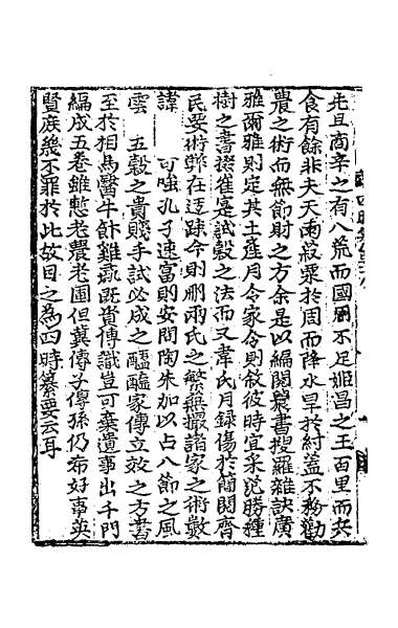 先且商辛之有八荒而國用不足姬昌之王百里而兆
食有餘非夫天雨菽粟於周而降水旱於紂蓋不務勸
農之術而無節財之方余是以編閱農書搜羅雜訣廣
雅爾雅則定其土產月令家令則敘彼時宜采氾勝種
樹之書掇崔寔試穀之法而又韋氏月録傷於簡閱齊
民要術弊在迂疎今則刪兩氏之繁蕪撮諸家之術數
諱 可嗤孔子速富則安問陶朱加以占八節之風
雲 五穀之貴賤手試必成之醯醢家傳立效之方書
至於相馬醫牛飰雞彘既資傳識豈可棄遺事出千門
編成五卷雖慙老農老圃但冀傳子傳孫仍希好事英
賢庶幾不罪於此故目之為四時纂要云耳